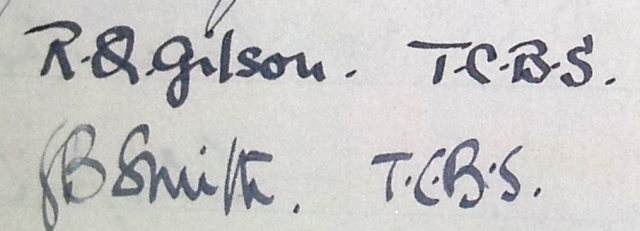 R.Q. Gilson. T.C.B.S.
GB Smith. T.C.B.S.